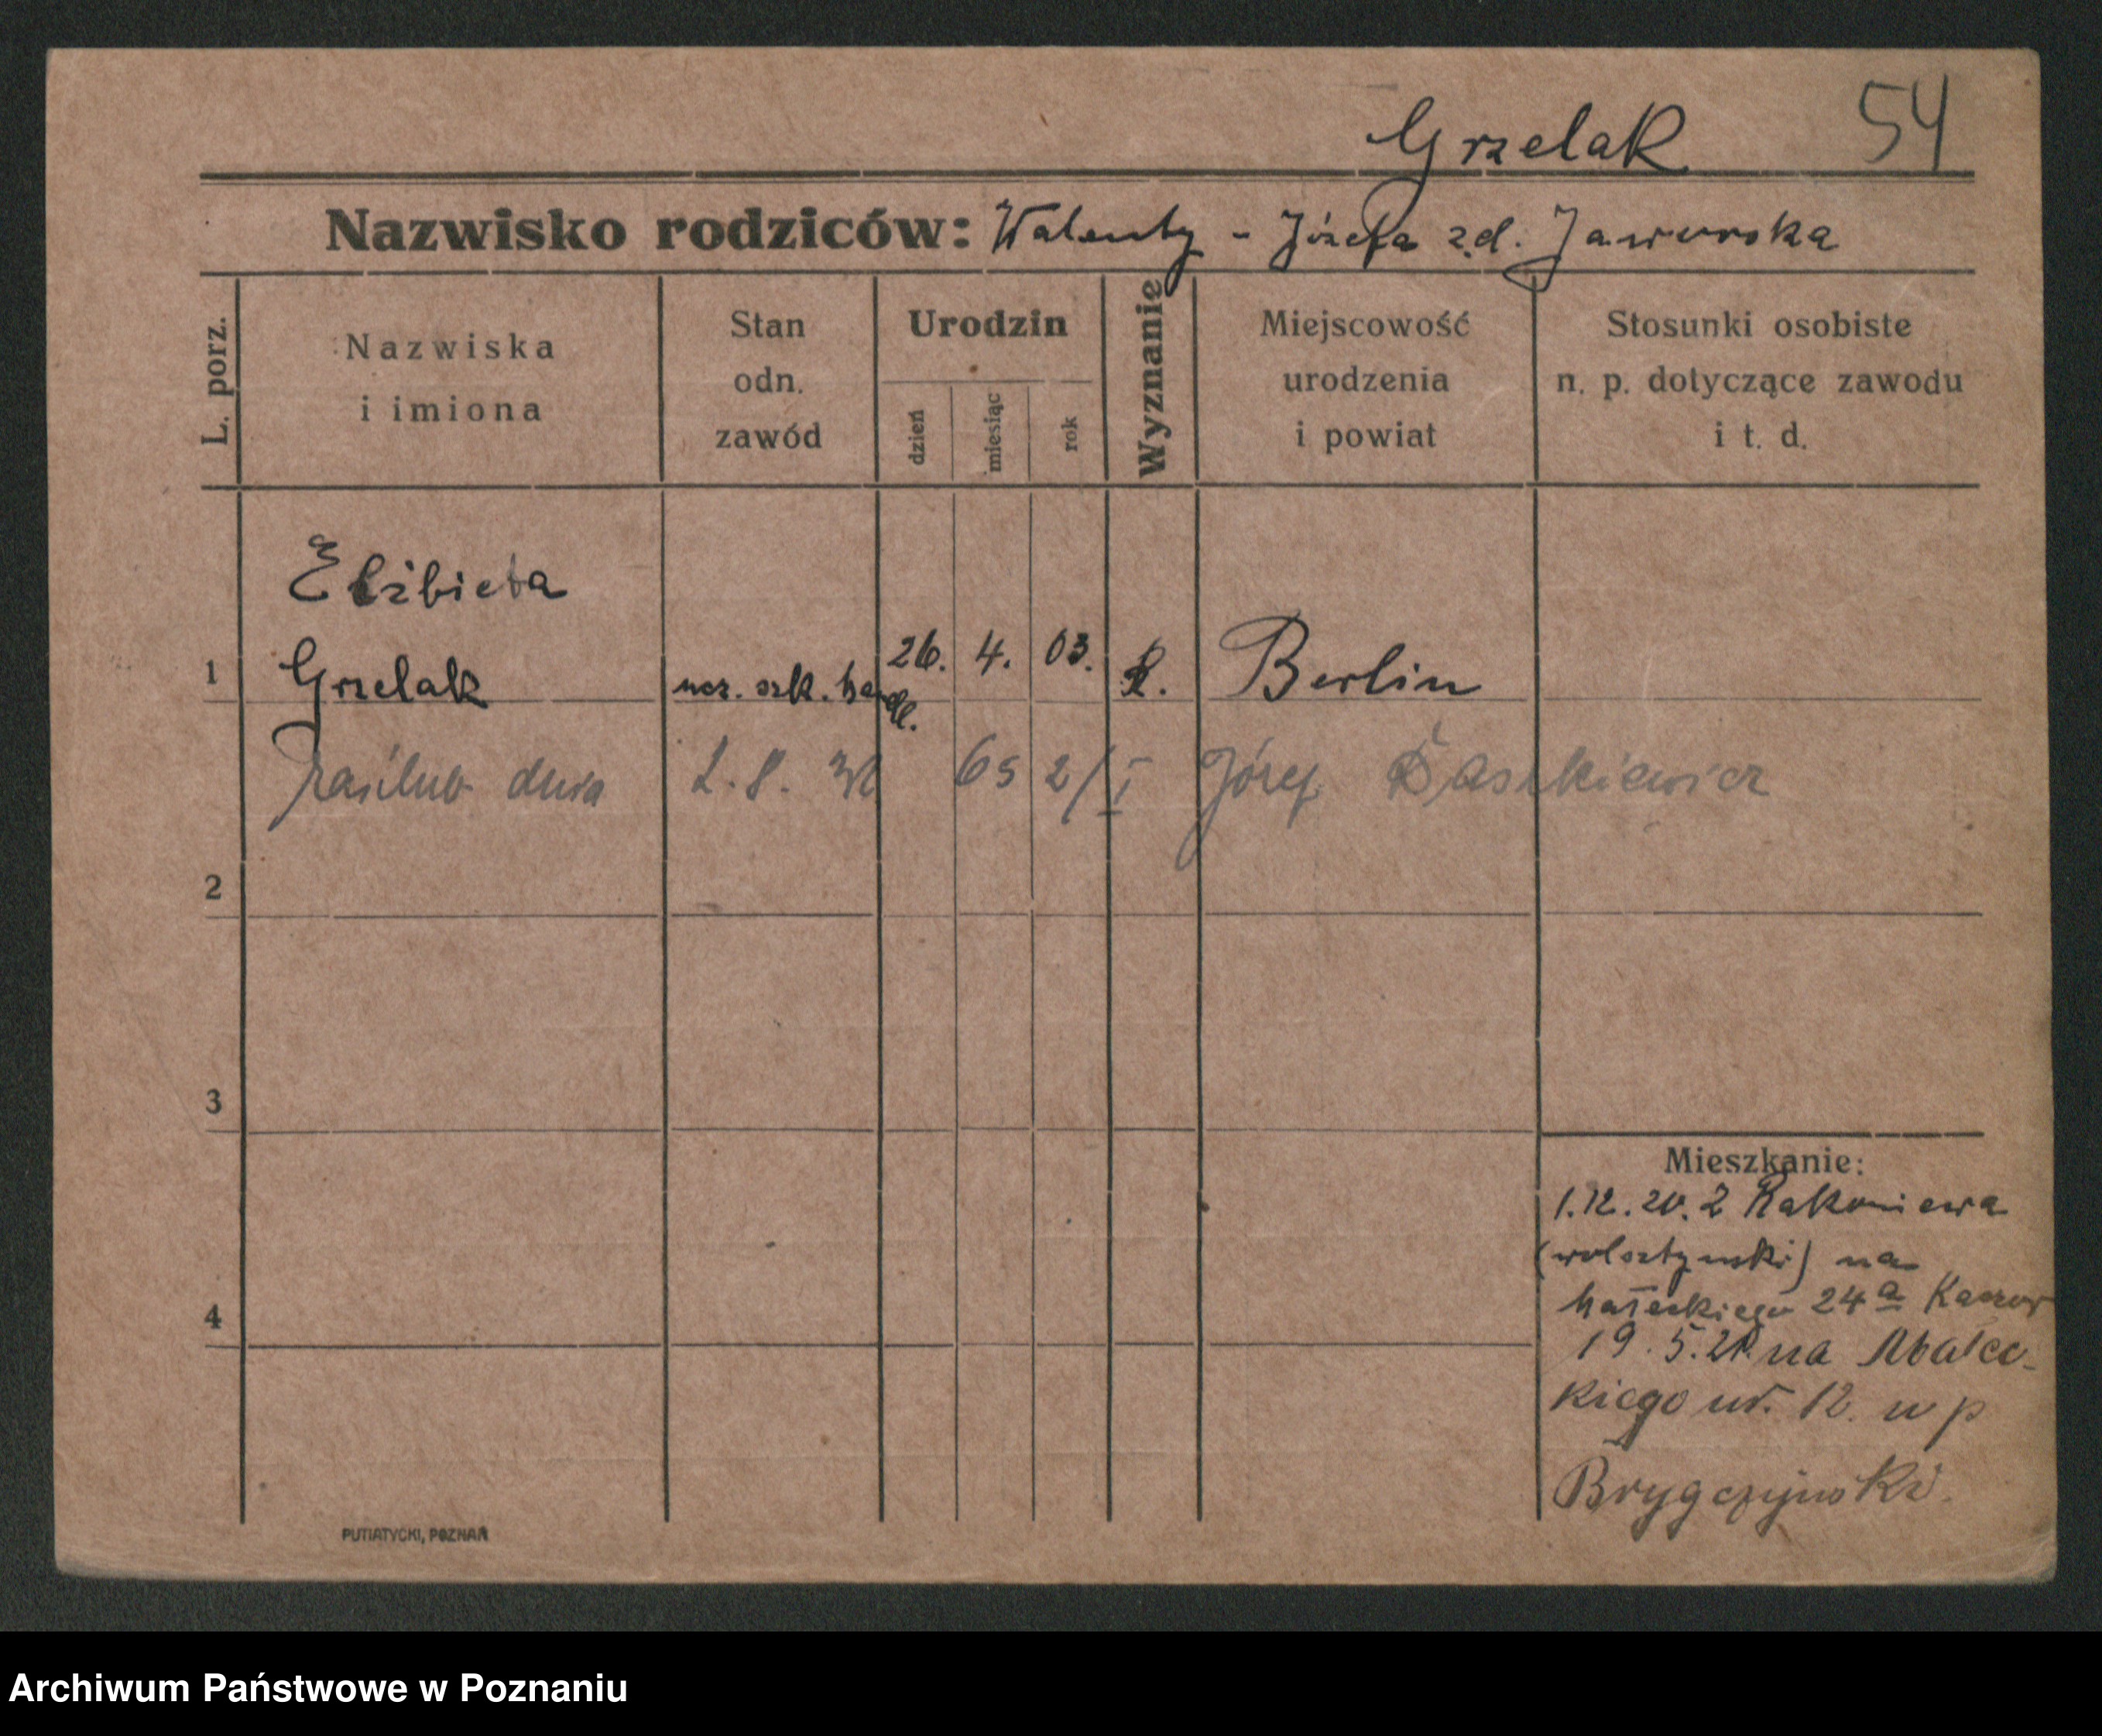 Grzelak 54
Nazwisko rodziców: Walenty - Józefa zd. Jaworska
L. porz.
Nazwiska
i imiona
Stan
odn.
zawód
Urodzin
dzień
miesiąc
rok
Wyznanie
Miejscowość
urodzenia
i powiat
Stosunki osobiste
n. p. dotyczące zawodu
i t. d.
Elżbieta
1 Grzelak ucz. szk. handl. 26. 4. 03. Berlin
zaślub. dnia 2. 8. 65 2/I Józef Daszkiewicz
2
3
4
Mieszkanie:
1.12.20. Z Rakoniewa
(wolsztyński) na
Małeckiego 24a
19.5.21. na Małec-
kiego ul. 12. u p
Brygczyński.
PUTIATYCKI, POZNAŃ
Archiwum Państwowe w Poznaniu